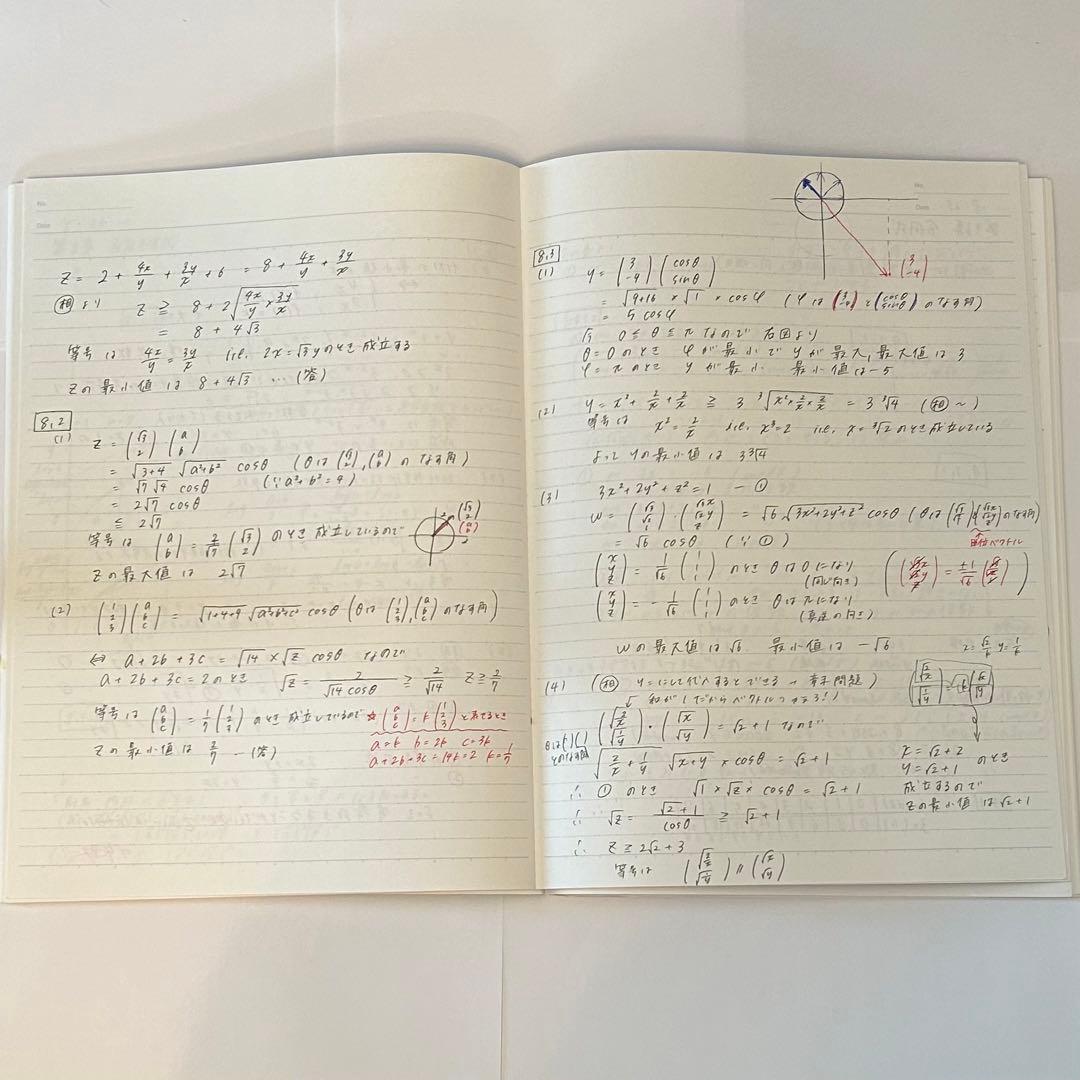 No.
Date
z = 2 + 4x/y + 3y/x + 6 = 8 + 4x/y + 3y/x
(相)より z ≧ 8 + 2√(4x/y × 3y/x)
= 8 + 4√3
等号は 4x/y = 3y/x i.e. 2x = √3y のとき 成立する
zの最小値は 8 + 4√3 … (答)
8.2
(1) z = (√3 2) (a b)
= √(3+4) √(a²+b²) cosθ (θは(√3 2),(a b)のなす角)
= √7 √4 cosθ (∵ a²+b²=4)
= 2√7 cosθ
≦ 2√7
等号は (a b) = 2/√7 (√3 2) のとき 成立しているので
zの最大値は 2√7
(√3 2)
(a b)
2
2
(2) (1 2 3) (a b c) = √(1+4+9) √(a²+b²+c²) cosθ (θは (1 2 3),(a b c) のなす角)
⇔ a + 2b + 3c = √14 × √z cosθ なので
a + 2b + 3c = 2のとき √z = 2/(√14 cosθ) ≧ 2/√14 z ≧ 2/7
等号は (a b c) = 1/7 (1 2 3) のとき 成立しているので
☆ (a b c) = k (1 2 3) と表せるとき
zの最小値は 2/7 … (答)
a = k b = 2k c = 3k
a + 2b + 3c = 14k = 2 k = 1/7
No.
Date
(3 -4)
8.3
(1) y = (3 -4) (cosθ sinθ)
= √(9+16) × √1 × cosφ (φは(3 -4)と(cosθ sinθ)のなす角)
= 5 cosφ
0 ≦ θ ≦ π なので 右図より
θ = 0 のとき φが最小で yが最大, 最大値は 3
φ = π のとき yが最小 最小値は -5
(2) y = x² + 2/x + 2/x ≧ 3 ³√(x² × 2/x × 2/x) = 3 ³√4 (相)~)
等号は x² = 2/x i.e. x³ = 2 i.e. x = ³√2 のとき成立している
よって yの最小値は 3³√4
(3) 3x² + 2y² + z² = 1 — ①
= √6 cosθ (∵ ①)
単位ベクトル
(x y z) = 1/√6 (1 1 1) のとき θは 0 になり
(同じ向き)
(x y z) = - 1/√6 (1 1 1) のとき θは πになり
(真逆の向き)
wの最大値は √6 最小値は -√6
(4) ((相) y = にして代入するとできる → 章末問題)
和が1だからベクトルつかえる!)
(√(2/x) √(1/y)) · (√x √y) = √2 + 1 なので
√(2/x + 1/y) √(x+y) × cosθ = √2 + 1
∴ ① のとき √1 × √z × cosθ = √2 + 1
∴ √z = (√2 + 1)/cosθ ≧ √2 + 1
∴ z ≧ 2√2 + 3
等号は (√(2/x) √(1/y)) // (√x √y)
x = √2 + 2
y = √2 + 1 のとき
成立するので
zの最小値は √2 + 1